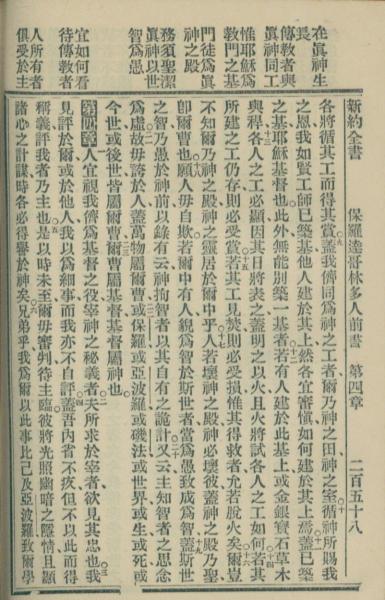 新約全書　保羅達哥林多人前書　第四章　二百五十八
在眞神生
長
傳敎者與
眞神同工
惟耶穌爲
敎門之基
門徒爲眞
神之殿
務須聖潔
眞神以世
智爲愚
宜如何看
待傳敎者
人所有者
俱受於主
各將循其工而得其賞蓋我儕同爲神之工者爾乃神之田神之室循神所賜我
之恩我如賢工師已築基他人建於其上然各宜審愼如何建於其上焉蓋已築
之基耶穌基督也此外無能別築一基者若有人建於此基上或金銀寶石草木
與稈各人之工必顯因其日將表之蓋明之以火且火將試各人之工如何若其
所建之工仍存則必受賞若其工見焚則必受損惟其得救者允若脫火矣爾豈
不知爾乃神之殿神之靈居於爾中乎人若壞神之殿神必壞彼蓋神之殿乃聖
卽爾曹也願人毋自欺若爾中有人貌爲智於斯世者當爲愚致成爲智蓋斯世
之智乃愚於神前以錄有云神拘智者以其自有之詭計又云主知智者之思念
爲虛故毋誇於人蓋萬物屬爾曹或保羅或亞波羅或磯法或世界或生或死或
今世或後世皆屬爾曹爾曹屬基督基督屬神也
第四章　人宜視我儕爲基督之役宰神之秘義者夫所求於宰者欲見其忠也我
見評於爾或於他人我以爲細事而我亦不自評蓋吾內省不疚但不以此而得
稱義評我者乃主也是以時未至爾毋審判待主臨彼將光照幽暗之隱情且顯
諸心之計謀時各必得譽於神矣兄弟乎我爲爾以此事比己及亞波羅致爾學